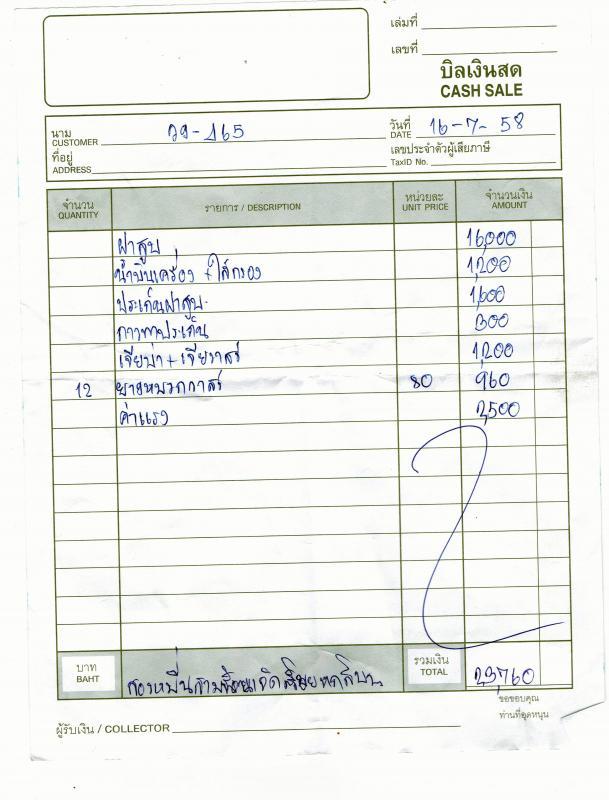 เล่มที่
เลขที่
บิลเงินสด
CASH SALE
นาม
CUSTOMER วว-465
วันที่
DATE 16-7-58
ที่อยู่
ADDRESS
เลขประจำตัวผู้เสียภาษี
TaxID No.
จำนวน QUANTITY รายการ / DESCRIPTION หน่วยละ UNIT PRICE จำนวนเงิน AMOUNT
ฝาสูบ 16,000
น้ำมันเครื่อง + ไส้กรอง 1,200
ประเก็นฝาสูบ 1,600
กาวทาประเก็น 300
เจียบ่า + เจียวาล์ว 1,200
12 ยางหมวกวาล์ว 80 960
ค่าแรง 2,500
บาท BAHT สองหมื่นสามพันเจ็ดร้อยหกสิบบาท รวมเงิน TOTAL 23,760
ขอขอบคุณ
ท่านที่อุดหนุน
ผู้รับเงิน / COLLECTOR